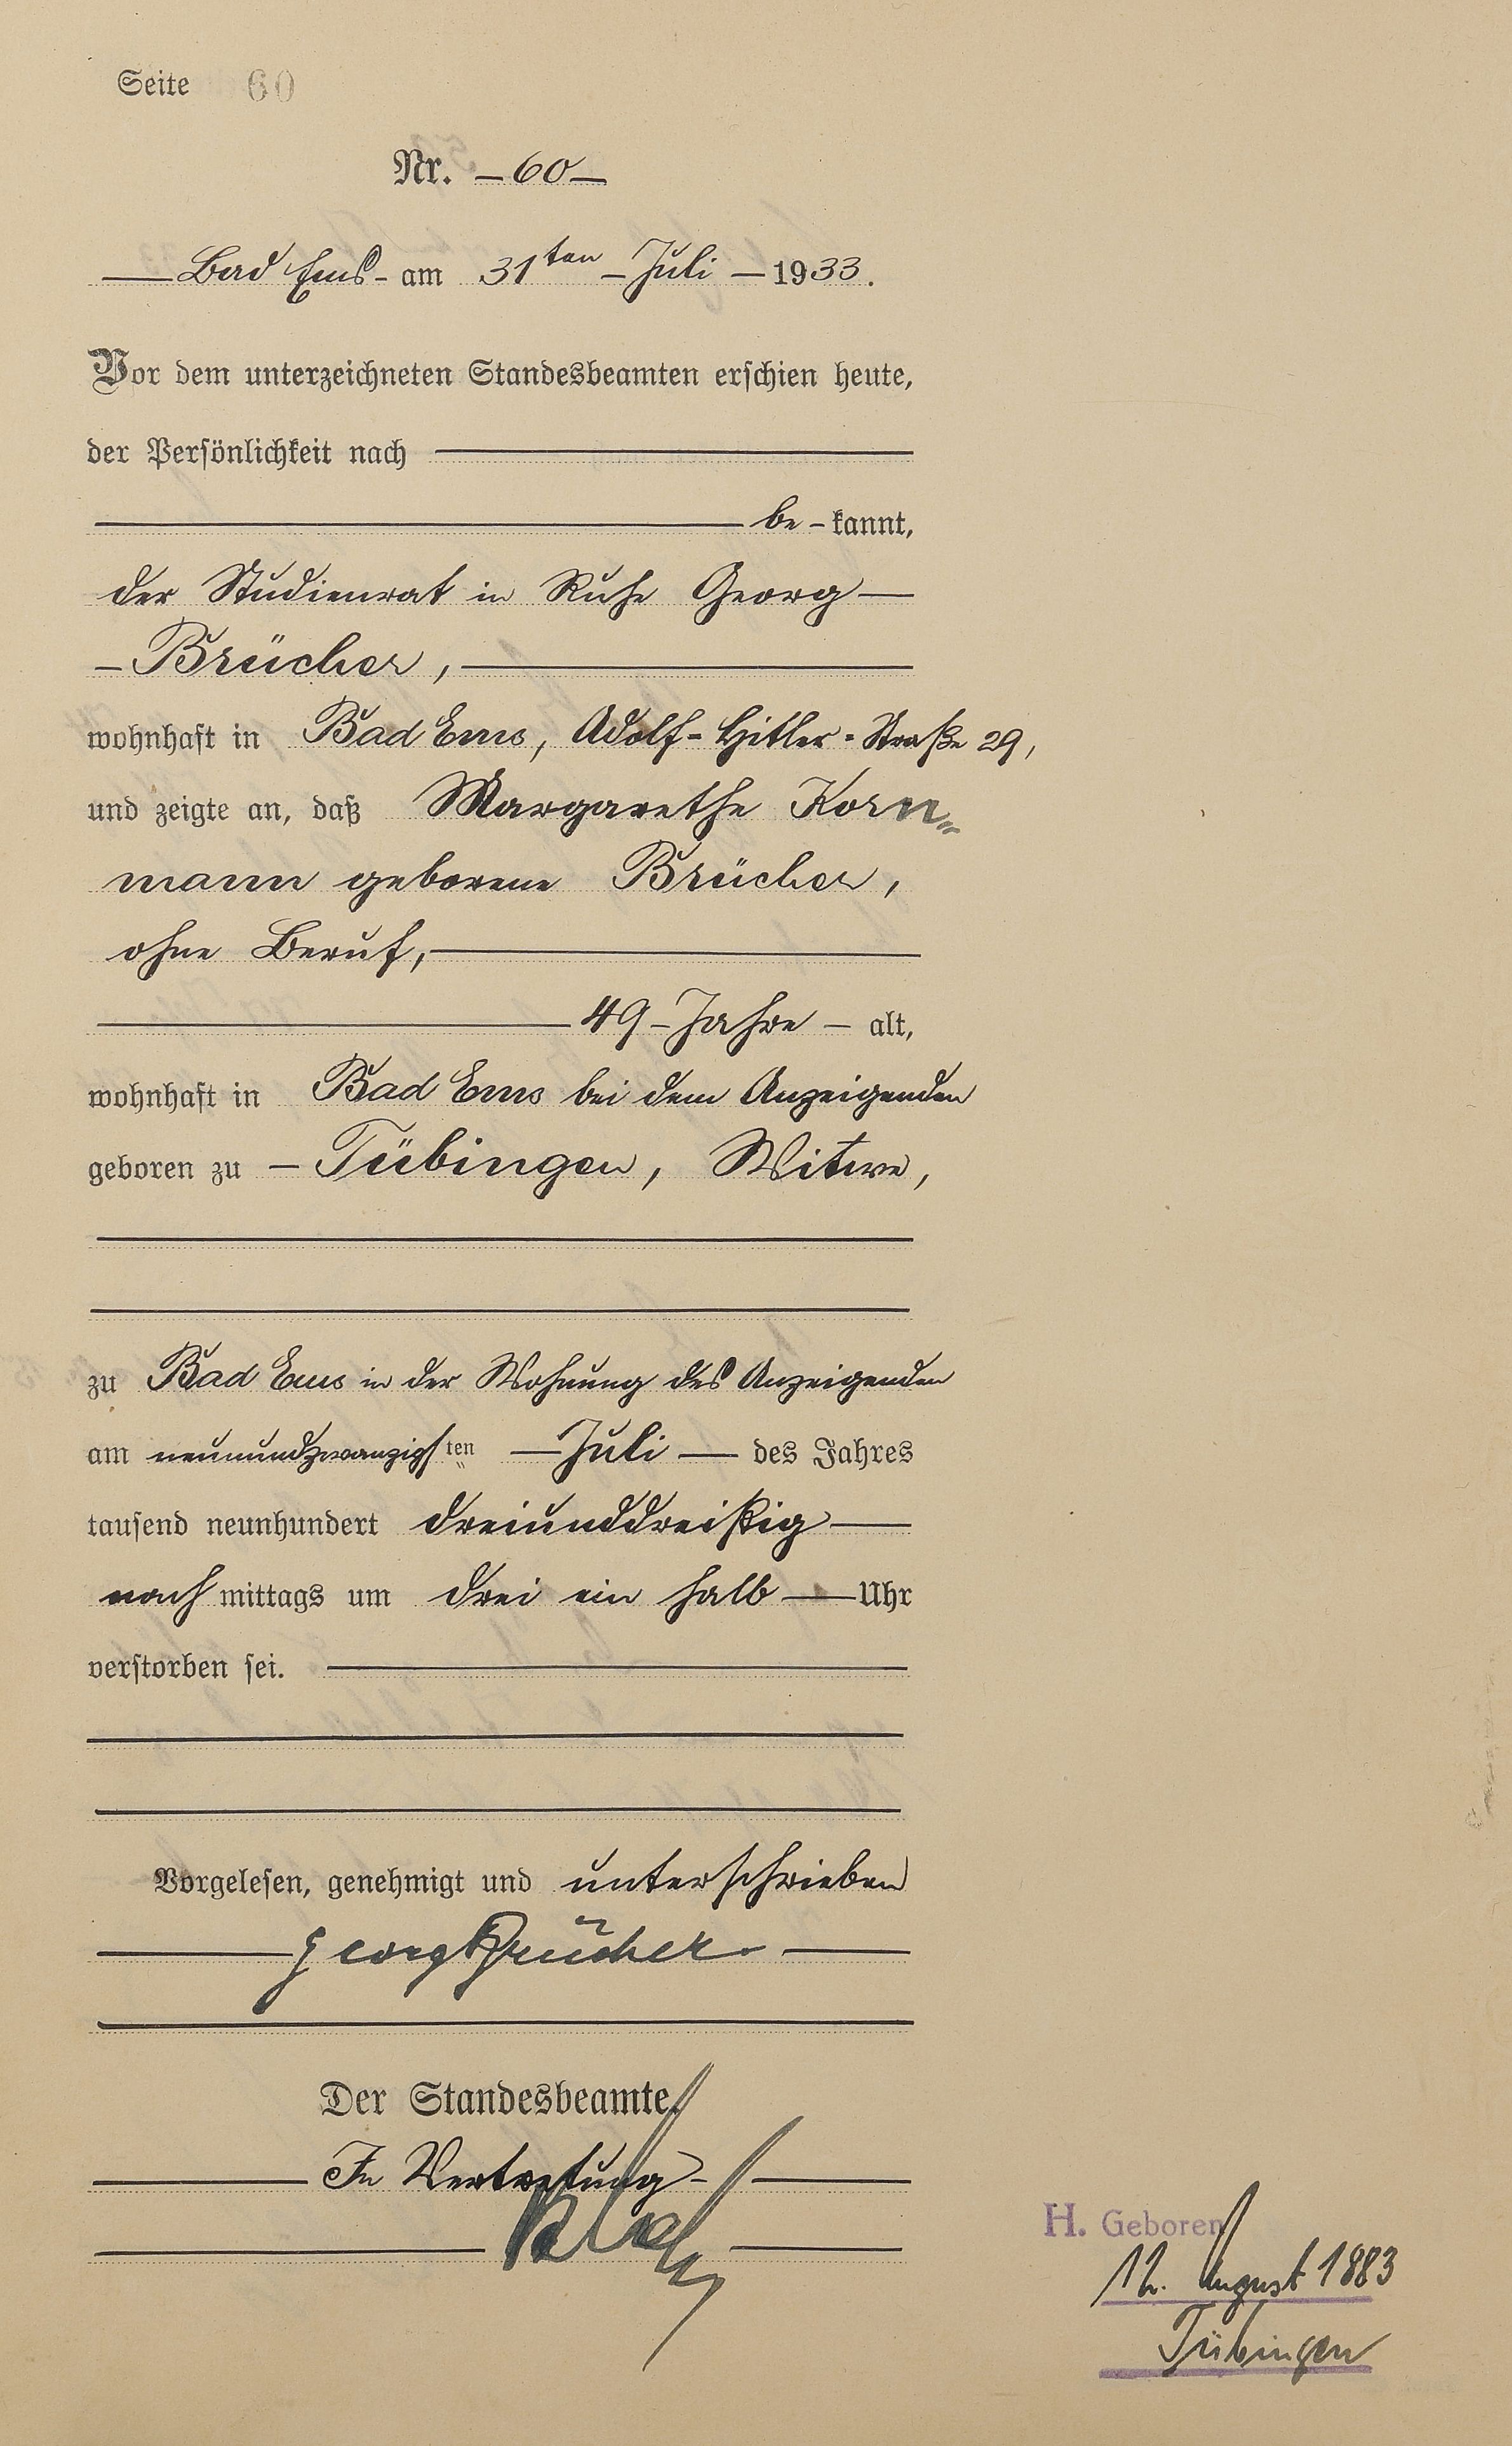 Seite 60
Nr. — 60 —
— Bad Ems - am 31ten — Juli — 1933.
Vor dem unterzeichneten Standesbeamten erschien heute,
der Persönlichkeit nach
be - kannt,
der Studienrat in Ruhe Georg —
— Brücher, —
wohnhaft in Bad Ems, Adolf-Hitler-Straße 29,
und zeigte an, daß Margarethe Korn=
mann geborene Brücher,
ohne Beruf, —
— 49 - Jahre — alt,
wohnhaft in Bad Ems bei dem Anzeigenden
geboren zu — Tübingen, Witwe,
zu Bad Ems in der Wohnung des Anzeigenden
am neunundzwanzigsten — Juli — des Jahres
tausend neunhundert dreiunddreißig —
nach mittags um drei ein halb — Uhr
verstorben sei. —
Vorgelesen, genehmigt und unterschrieben
— Georg Brücher —
Der Standesbeamte.
— In Vertretung —
H. Geboren
12. August 1883
Tübingen